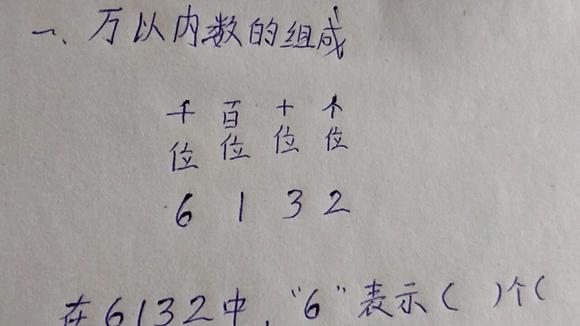 一、万以内数的组成
千 百 十 个
位 位 位 位
6 1 3 2
在6132中,“6”表示( )个(